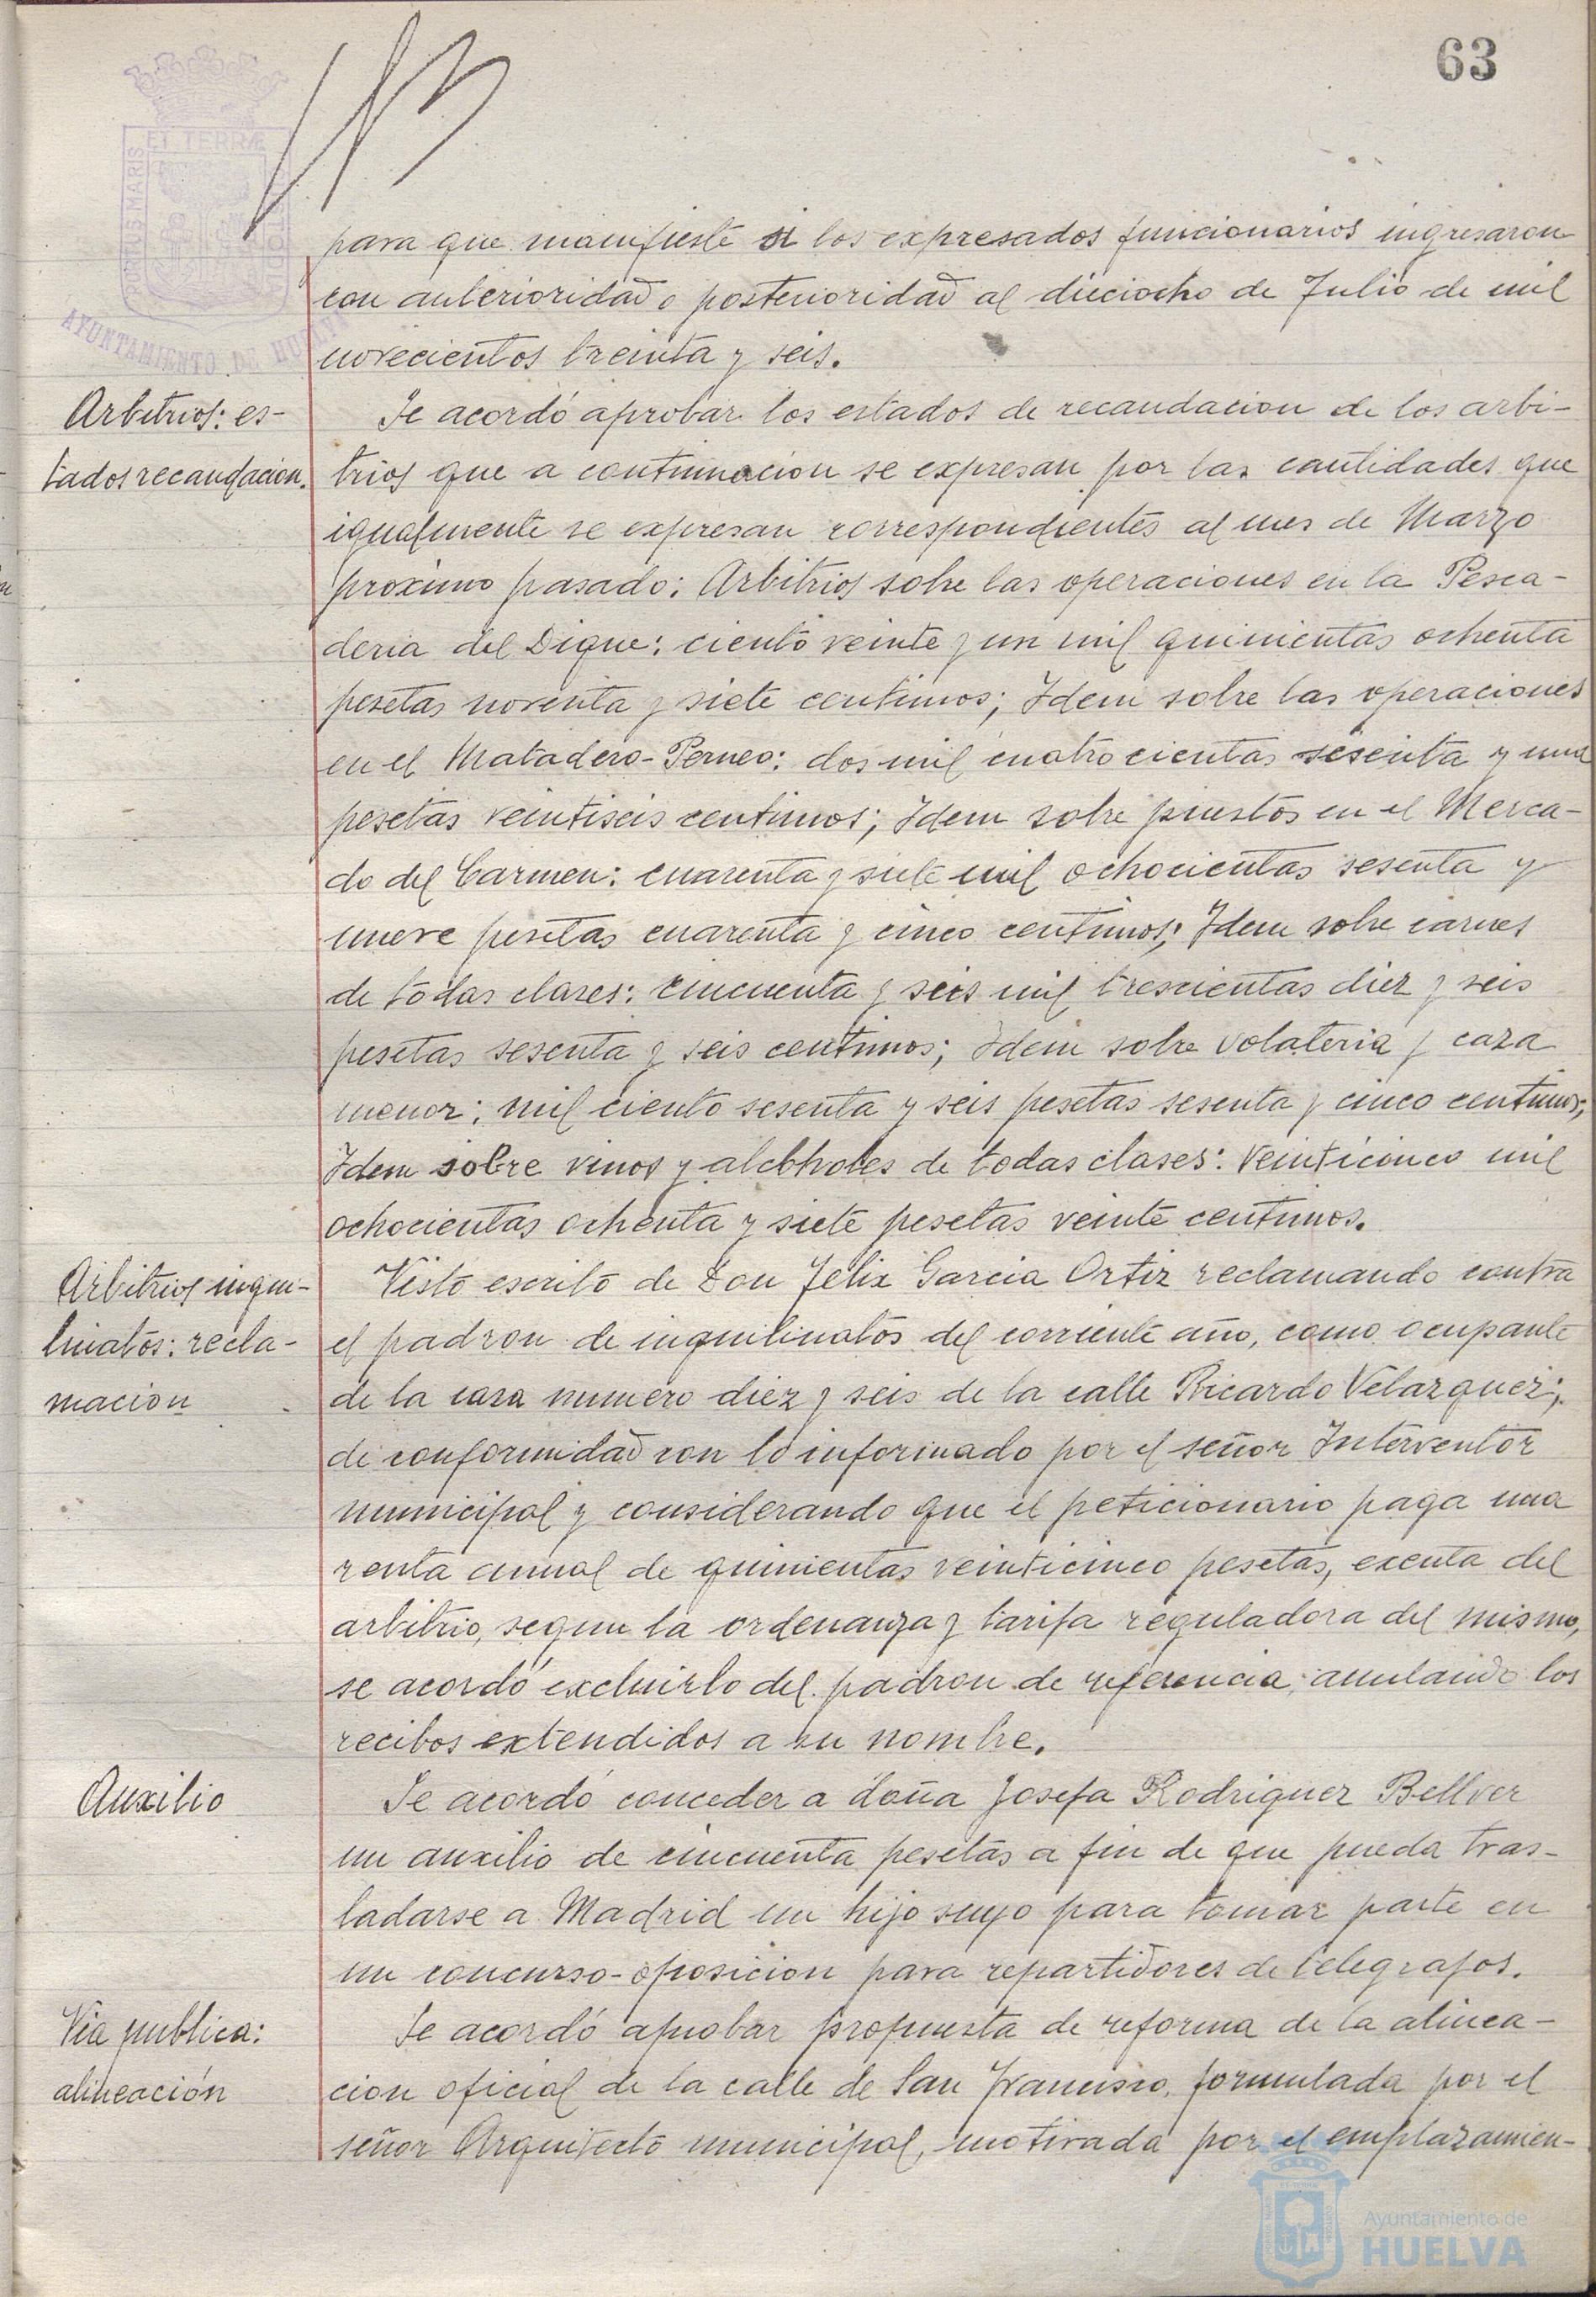 63
ET TERRÆ
PORTUS MARIS
AYUNTAMIENTO DE HUELVA
para que manifieste si los expresados funcionarios ingresaron
con anterioridad o posterioridad al dieciocho de Julio de mil
novecientos treinta y seis.
Arbitrios: es-
tados recaudacion.
Se acordó aprobar los estados de recaudacion de los arbi-
trios que a continuacion se expresan por las cantidades que
igualmente se expresan correspondientes al mes de Marzo
proximo pasado: Arbitrios sobre las operaciones en la Pesca-
deria del Dique: ciento veinte y un mil quinientas ochenta
pesetas noventa y siete centimos; Idem sobre las operaciones
en el Matadero-Perneo: dos mil cuatrocientas sesenta y una
pesetas veintiseis centimos; Idem sobre puestos en el Merca-
do del Carmen: cuarenta y siete mil ochocientas sesenta y
nueve pesetas cuarenta y cinco centimos; Idem sobre carnes
de todas clases: cincuenta y seis mil trescientas diez y seis
pesetas sesenta y seis centimos; Idem sobre volateria y caza
menor: mil ciento sesenta y seis pesetas sesenta y cinco centimos;
Idem sobre vinos y alcoholes de todas clases: veinticinco mil
ochocientas ochenta y siete pesetas veinte centimos.
Arbitrios inqui-
linatos: recla-
macion
Visto escrito de Don Felix Garcia Ortiz reclamando contra
el padron de inquilinatos del corriente año, como ocupante
de la casa numero diez y seis de la calle Ricardo Velazquez;
de conformidad con lo informado por el señor Interventor
municipal y considerando que el peticionario paga una
renta anual de quinientas veinticinco pesetas, exenta del
arbitrio, segun la ordenanza y tarifa reguladora del mismo,
se acordó excluirlo del padron de referencia anulando los
recibos extendidos a su nombre.
Auxilio
Se acordó conceder a doña Josefa Rodriguez Bellver
un auxilio de cincuenta pesetas a fin de que pueda tras-
ladarse a Madrid un hijo suyo para tomar parte en
un concurso-oposicion para repartidores de telegrafos.
Via publica:
alineación
Se acordó aprobar propuesta de reforma de la alinea-
cion oficial de la calle de San Francisco, formulada por el
señor Arquitecto municipal, motivada por el emplazamien-
Ayuntamiento de
HUELVA